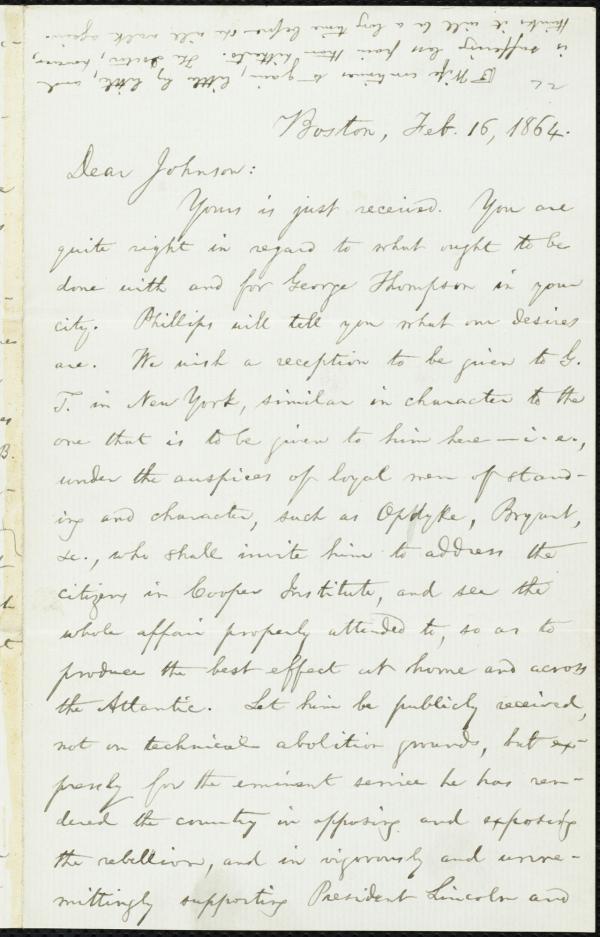 ☞ Wife continues to gain, little by little, and
is suffering less pain than hitherto. The doctor, however,
thinks it will be a long time before she will walk again.
Boston, Feb. 16, 1864.
Dear Johnson:
Yours is just received. You are
quite right in regard to what ought to be
done with and for George Thompson in your
city. Phillips will tell you what our desires
are. We wish a reception to be given to G.
T. in New York, similar in character to the
one that is to be given to him here — i. e.,
under the auspices of loyal men of stand-
ing and character, such as Opdyke, Bryant,
&c., who shall invite him to address the
citizens in Cooper Institute, and see the
whole affair properly attended to, so as to
produce the best effect at home and across
the Atlantic. Let him be publicly received,
not on technical abolition grounds, but ex-
pressly for the eminent service he has ren-
dered the country in opposing and exposing
the rebellion, and in vigorously and unre-
mittingly supporting President Lincoln and